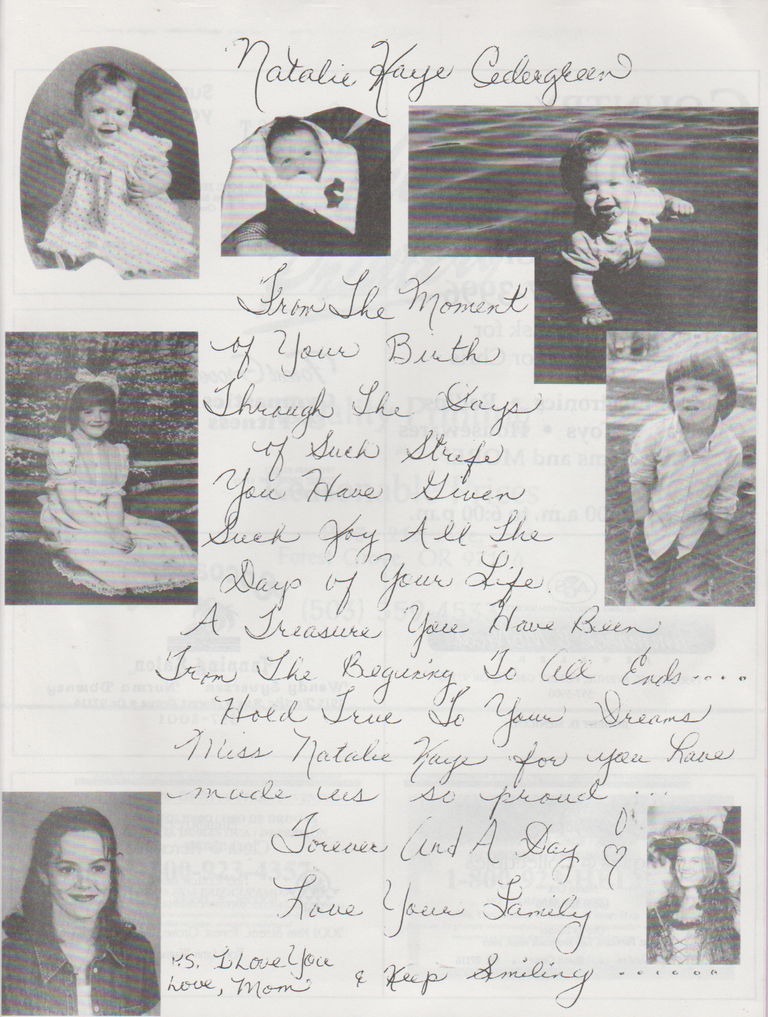 Natalie Kaye Cedergreen
From The Moment
of Your Birth
Through The Days
of Such Strife
You Have Given
Such Joy All The
Days of Your Life.
A Treasure You Have Been
From The Begining To All Ends....
Hold True To Your Dreams
Miss Natalie Kaye for you have
made us so proud ...
Forever And A Day
Love Your Family
P.S. I Love You
Love, Mom & Keep Smiling .......